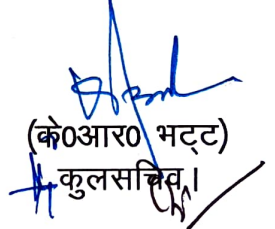 (के0आर0 भट्ट)
कुलसचिव।